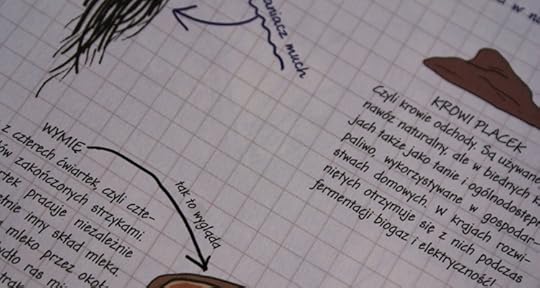 w n
aniacz much
KROWI PLACEK
Czyli krowie odchody. Są używane
nawóz naturalny, ale w biednych k
jach także jako tanie i ogólnodostępn
paliwo, wykorzystywane w gospodar-
stwach domowych. W krajach rozwi-
niętych otrzymuje się z nich podczas
fermentacji biogaz i elektryczność!
WYMIĘ
z czterech ćwiartek, czyli czte-
ów zakończonych strzykami.
rtek pracuje niezależnie
tnie inny skład mleka.
mleko przez okoł
dło ras mi
trak
tak to wygląda